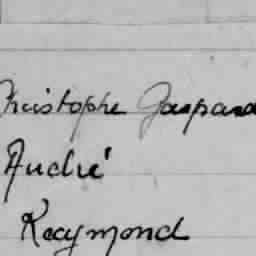 Christophe Gaspard
André
Raymond